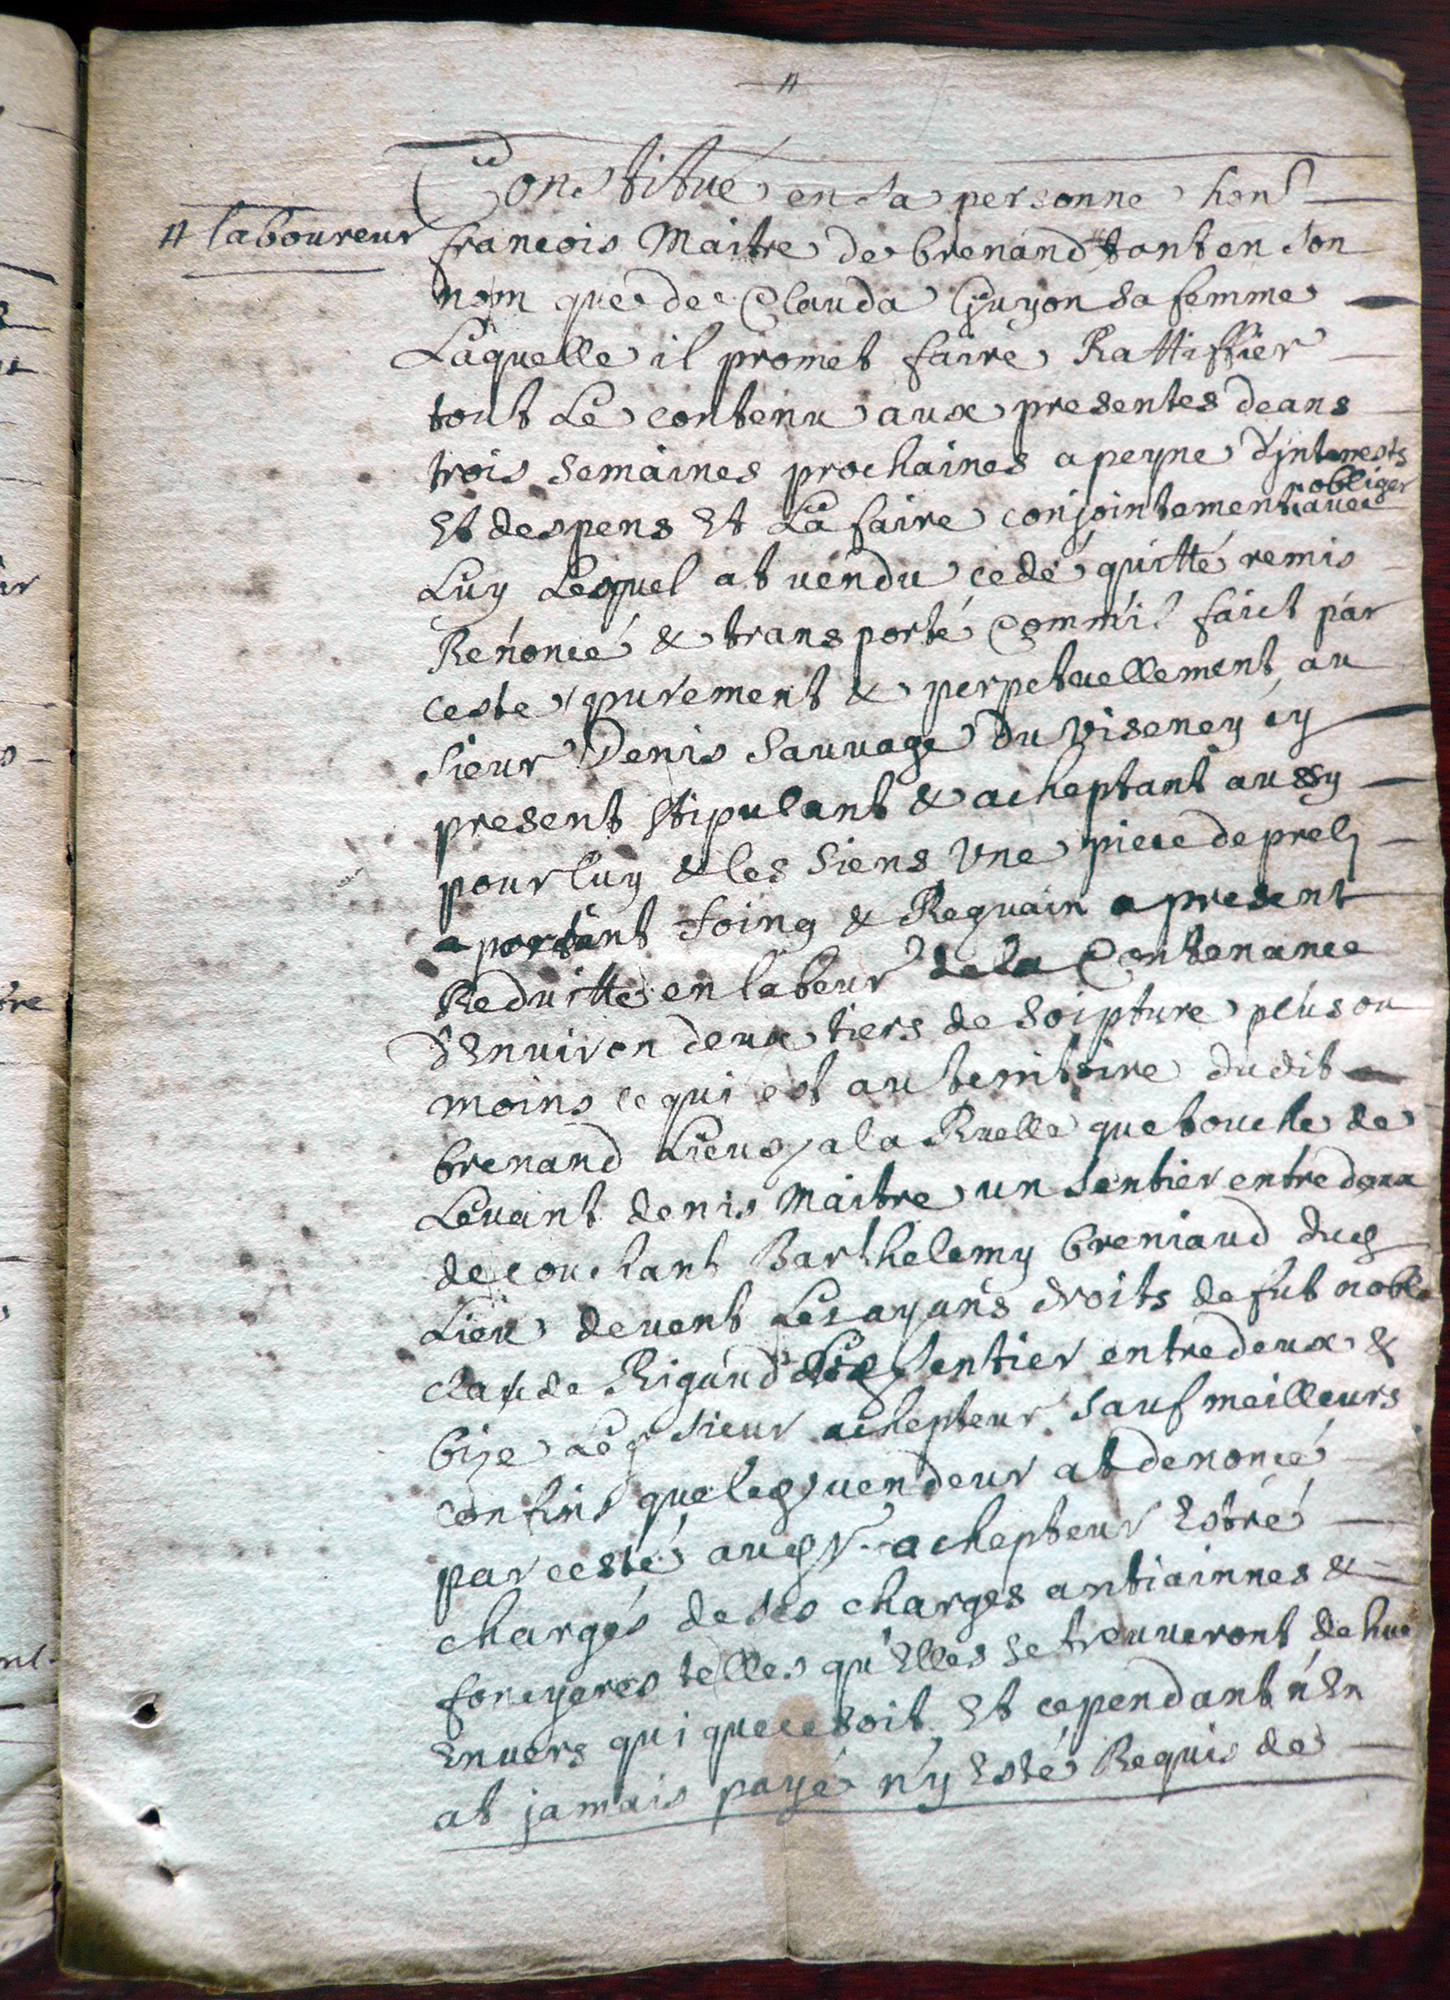 Constitué en sa personne hon
# laboureur
francois Maitre de brenand # tant en son
nom que de Clauda Guyon sa femme
Laquelle il promet faire Rattiffier
tout Le contenu aux presentes deans
trois semaines prochaines a peyne d'jnterests
Et despens Et La faire obliger conjointement avec
Luy Lesquel at vendu cedé quitté remis
Renoncé & transporté comm'il faict par
ceste purement & perpetuellement au
sieur Denis Sauvage Du Viseney cy
present stipulant & acheptant aussy
pour luy & les siens Vne piece de prel
portant foing & Reguain a present
Reduitte en labeur de la Contenance
d'Enuiron deux tiers de soipture plus ou
moins ce qui est au territoire dudit
brenand Lieusj a la Ruelle que touche de
Leuant denis Maitre un sentier entre deux
de couchant Barthelemy breniaud dud
Lieu de vent Les ayans droits de fut noble
claude Rigaud sentier entredeux &
bize Led sieur achepteur sauf meilleurs
confins que led vendeur at denoncé
par ceste aud sr achepteur Estre
chargés de ses charges antiainnes &
foncyeres telles qu'Elles se treuueront dehue
Enuers qui que ce soit Et cependant n'En
at jamais payé n'y Esté Requis de